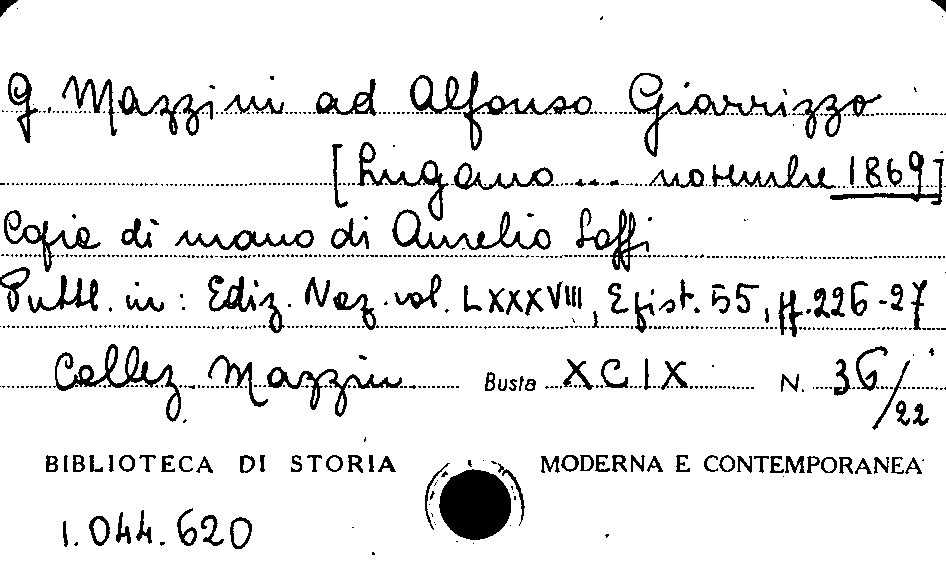 G. Mazzini ad Alfonso Giarrizzo
[Lugano ... novembre 1869]
Copia di mano di Aurelio Saffi
Pubbl. in: Ediz. Naz. vol. LXXXVIII, Epist. 55, pp. 226-27
Collez. Mazzini Busta XCIX N. 36/22
BIBLIOTECA DI STORIA MODERNA E CONTEMPORANEA
1.044.620